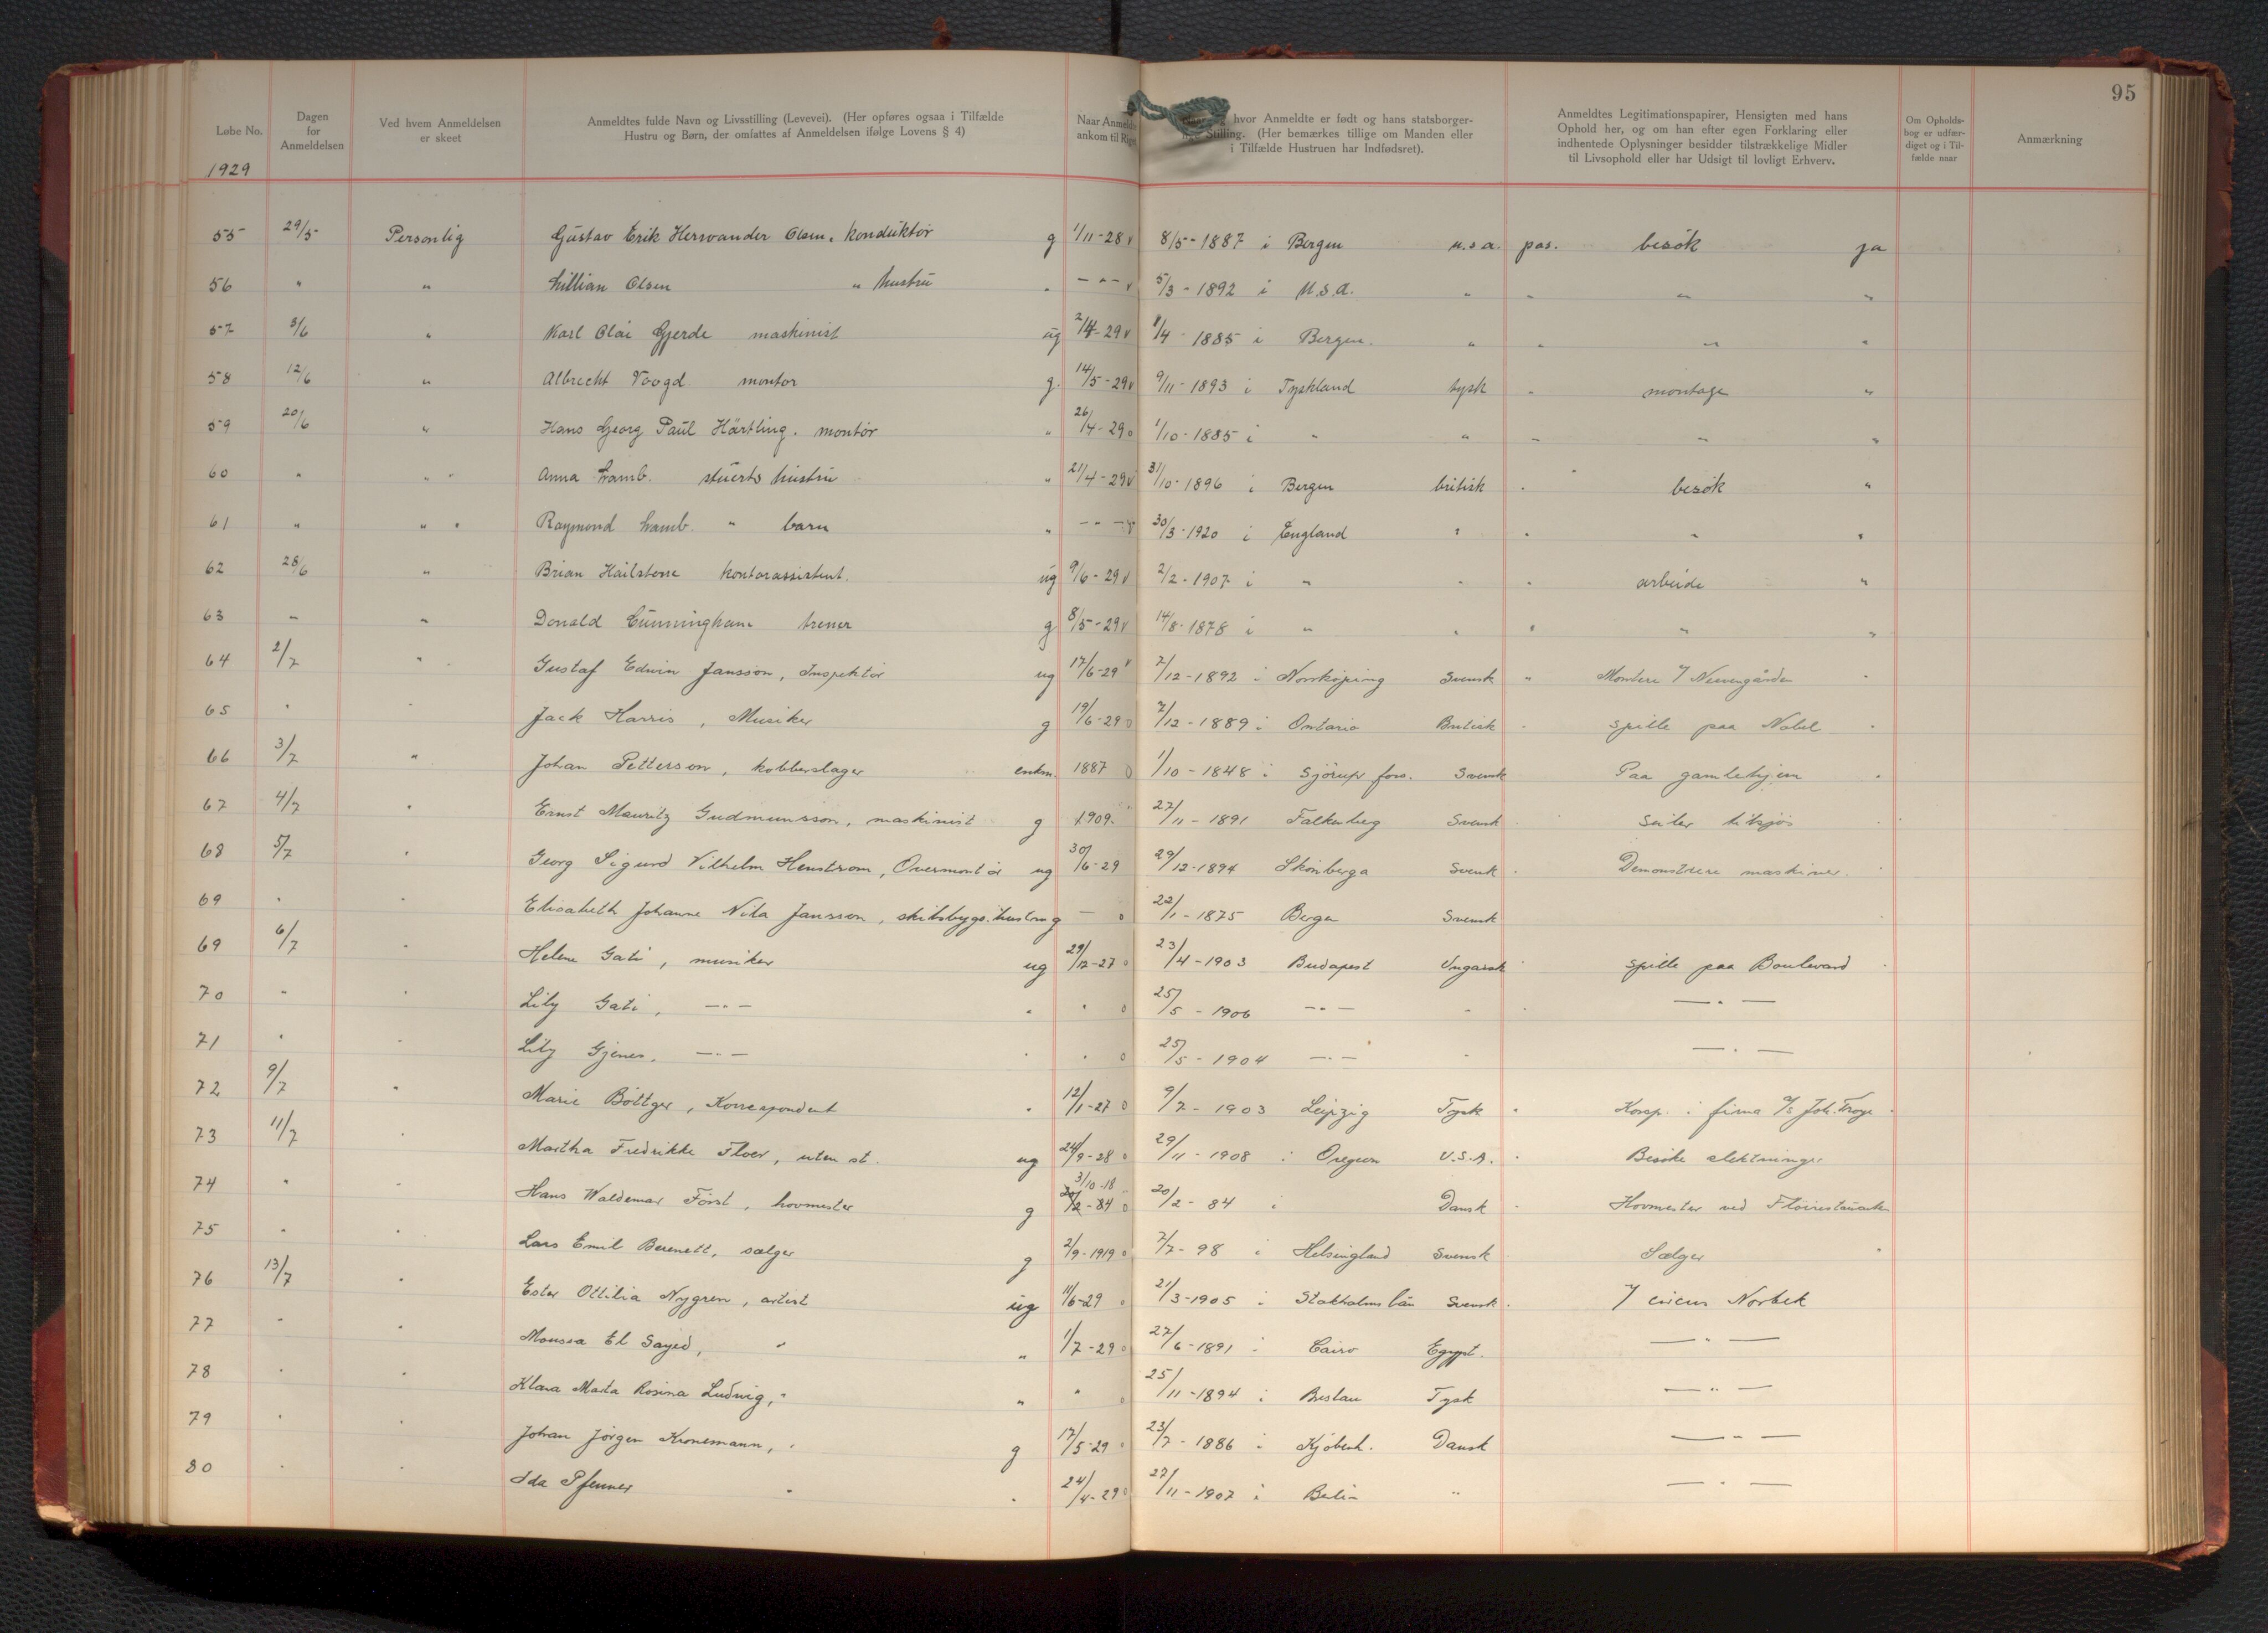 95
Løbe No.
Dagen for Anmeldelsen
Ved hvem Anmeldelsen er skeet
Anmeldtes fulde Navn og Livsstilling (Levevei). (Her opføres ogsaa i Tilfælde Hustru og Børn, der omfattes af Anmeldelsen ifølge Lovens § 4)
Naar Anmeldte ankom til Riget
hvor Anmeldte er født og hans statsborgerlige Stilling. (Her bemærkes tillige om Manden eller i Tilfælde Hustruen har Indfødsret).
Anmeldtes Legitimationspapirer, Hensigten med hans Ophold her, og om han efter egen Forklaring eller indhentede Oplysninger besidder tilstrækkelige Midler til Livsophold eller har Udsigt til lovligt Erhverv.
Om Opholdsbog er udfærdiget og i Tilfælde naar
Anmærkning
1929
55 29/5 Personlig Gustav Erik Hersvander Olsen, konduktør g 1/11-28 v 8/5-1887 i Bergen u.s.a. pas. besøk ja
56 " " Lillian Olsen " hustru " - " - v 5/3-1892 i U.S.A. " " " "
57 3/6 " Karl Olai Gjerde maskinist ug 2/4-29 v 1/4-1885 i Bergen. " " " "
58 12/6 " Albrecht Voogd montør g. 14/5-29 v 9/11-1893 i Tyskland tysk " montage "
59 20/6 " Hans Georg Paul Härtling. montør " 26/4-29 o 1/10-1885 i " " " " "
60 " " Anna Lamb. stuerts hustru " 21/4-29 v 31/10-1896 i Bergen britisk " besøk "
61 " " Raymond Lamb. " barn " - " - v 30/3-1920 i England " " " "
62 28/6 " Brian Hailstone kontorassistent. ug 9/6-29 v 2/2-1907 i " " " arbeide "
63 " " Donald Cunningham trener g 8/5-29 v 14/8-1878 i " " " " "
64 2/7 " Gustaf Edwin Jansson, Inspektør ug 17/6-29 v 7/12-1892 i Norrköping Svensk " Montere
65 " " Jack Harris, Musiker g 19/6-29 o 7/12-1889 i Ontario Britisk " spille paa Nobel "
66 3/7 " Johan Petterson, kobberslager enkm. 1887 o 1/10-1848 i Sjörup fors. Svensk Paa gamlehjem "
67 4/7 " Ernst Mauritz Gudmunsson, maskinist g 1909. 27/11-1891 Falkenberg Svensk " Seiler tilsjøs "
68 5/7 " Georg Sigurd Vilhelm Henstrom, Overmontør ug 30/6-29 29/12-1894 Skönberga Svensk " Demonstrere maskiner. "
69 " " Elisabeth Johanne Nila Jansson, skibsbygs. hustru g - o 22/1-1875 Bergen Svensk
69 6/7 " Helene Gati, musiker ug 29/12-27 o 23/4-1903 Budapest Ungarsk " spille paa Boulevard "
70 " " Lily Gati, - " - " " o 25/5-1906 - " - " " - " -
71 " " Lily Gjener, - " - " " o 25/5-1904 - " - " - " -
72 9/7 " Marie Böttger, Korrespondent " 12/1-27 o 9/7-1903 Leipzig Tysk " Korsp. i firma A/S Joh. Troye "
73 11/7 " Martha Fredrikke Floer, uten st. ug 24/9-28 o 29/11-1908 i Oregon U.S.A. " Besøke slektninger
74 " Hans Waldemar Först, hovmester g 3/10-18 20/2-84 o 20/2-84 i Dansk " Hovmester ved Fløirestauranten
75 " " Lars Emil Berenett, sælger g 2/9-1919 o 7/7-98 i Helsingland Svensk " Sælger "
76 13/7 " Ester Ottilia Nygren, artist ug 11/6-29 o 21/3-1905 i Stokholms län Svensk " circus Norbek
77 " " Moussa El Sayed, " " 1/7-29 o 27/6-1891 i Cairo Egypt. - " -
78 " " Klara Marta Rosina Ludwig, " " " o 25/11-1894 i Breslau Tysk - " -
79 " " Johan Jørgen Kronemann, " g 17/5-29 o 23/7-1886 i Kjøbenh. Dansk - " -
80 " " Ida Pfenner " " 24/4-29 o 27/11-1907 i Berlin " - " -